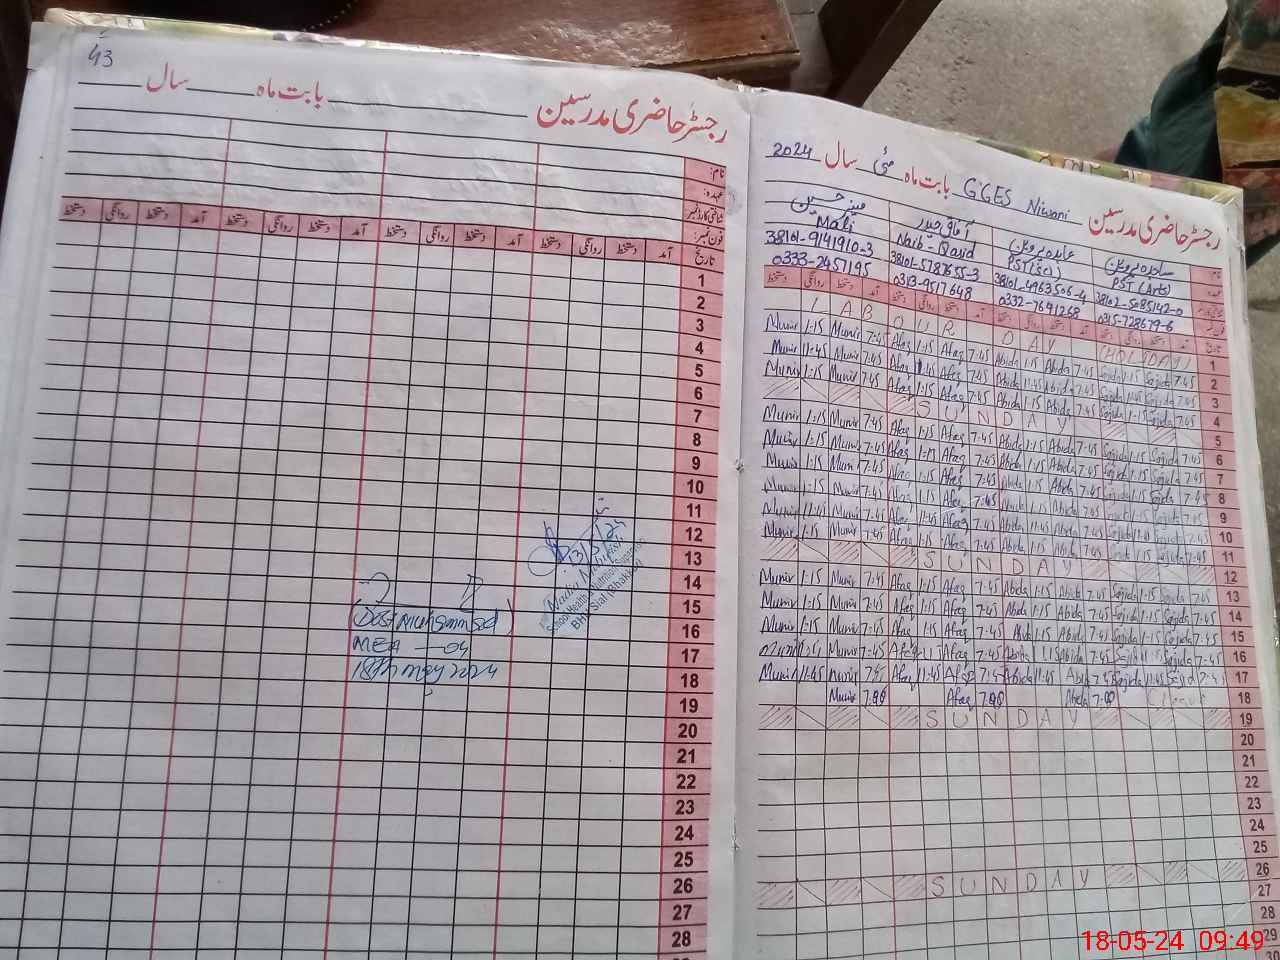 43
رجسٹر حاضری مدرسین بابت ماہ سال
نام:
عہدہ:
شناختی کارڈ نمبر
فون نمبر:
تاریخ آمد دستخط روانگی دستخط آمد دستخط روانگی دستخط آمد دستخط روانگی دستخط آمد دستخط روانگی دستخط
1
2
3
4
5
6
7
8
9
10
11
12
13
14
15
16
17
18
19
20
21
22
23
24
25
26
27
28
School Health & Nutrition Supervisor
BHU Sial
(Dost Muhammad)
MEA - 04
18th may 2024
رجسٹر حاضری مدرسین GGES Niwani بابت ماہ مئی سال 2024
ساجدہ پروین عابدہ پروین آفاق حیدر
PST (Arts) PST (Sci) Naib-Qasid Mali
38102-5085142-0 38101-4963506-4 38101-5787655-3 38101-9141910-3
0315-728679-6 0332-7691268 0313-9517648 0333-2457195
تاریخ آمد دستخط روانگی دستخط
1 LABOUR DAY (HOLIDAY)
2 Munir 1:15 Munir 7:45 Afaq 1:15 Afaq 7:45 Abida 1:15 Abida 7:45 Sajida 1:15 Sajida 7:45
3 Munir 11:45 Munir 7:45 Afaq 11:45 Afaq 7:45 Abida 11:45 Abida 7:45 Sajida 11:45 Sajida 7:45
4 Munir 1:15 Munir 7:45 Afaq 1:15 Afaq 7:45 Abida 1:15 Abida 7:45 Sajida 1:15 Sajida 7:45
5 SUNDAY
6 Munir 1:15 Munir 7:45 Afaq 1:15 Afaq 7:45 Abida 1:15 Abida 7:45 Sajida 1:15 Sajida 7:45
7 Munir 1:15 Munir 7:45 Afaq 1:15 Afaq 7:45 Abida 1:15 Abida 7:45 Sajida 1:15 Sajida 7:45
8 Munir 1:15 Munir 7:45 Afaq 1:15 Afaq 7:45 Abida 1:15 Abida 7:45 Sajida 1:15 Sajida 7:45
9 Munir 1:15 Munir 7:45 Afaq 1:15 Afaq 7:45 Abida 1:15 Abida 7:45 Sajida 1:15 Sajida 7:45
10 Munir 11:45 Munir 7:45 Afaq 11:45 Afaq 7:45 Abida 11:45 Abida 7:45 Sajida 11:45 Sajida 7:45
11 Munir 1:15 Munir 7:45 Afaq 1:15 Afaq 7:45 Abida 1:15 Abida 7:45 Sajida 1:15 Sajida 7:45
12 SUNDAY
13 Munir 1:15 Munir 7:45 Afaq 1:15 Afaq 7:45 Abida 1:15 Abida 7:45 Sajida 1:15 Sajida 7:45
14 Munir 1:15 Munir 7:45 Afaq 1:15 Afaq 7:45 Abida 1:15 Abida 7:45 Sajida 1:15 Sajida 7:45
15 Munir 1:15 Munir 7:45 Afaq 1:15 Afaq 7:45 Abida 1:15 Abida 7:45 Sajida 1:15 Sajida 7:45
16 Munir 7:45 Afaq 1:15 Afaq 7:45 Abida 1:15 Abida 7:45 Sajida Sajida 7:45
17 Munir 11:45 Munir 7:45 Afaq 11:45 Afaq 7:45 Abida 11:45 Abida 7:45 Sajida 11:45 Sajida 7:45
18 Munir 7:00 Afaq 7:00 Abida 7:00
19 SUNDAY
20
21
22
23
24
25
26 SUNDAY
27
28
29
30
18-05-24 09:49